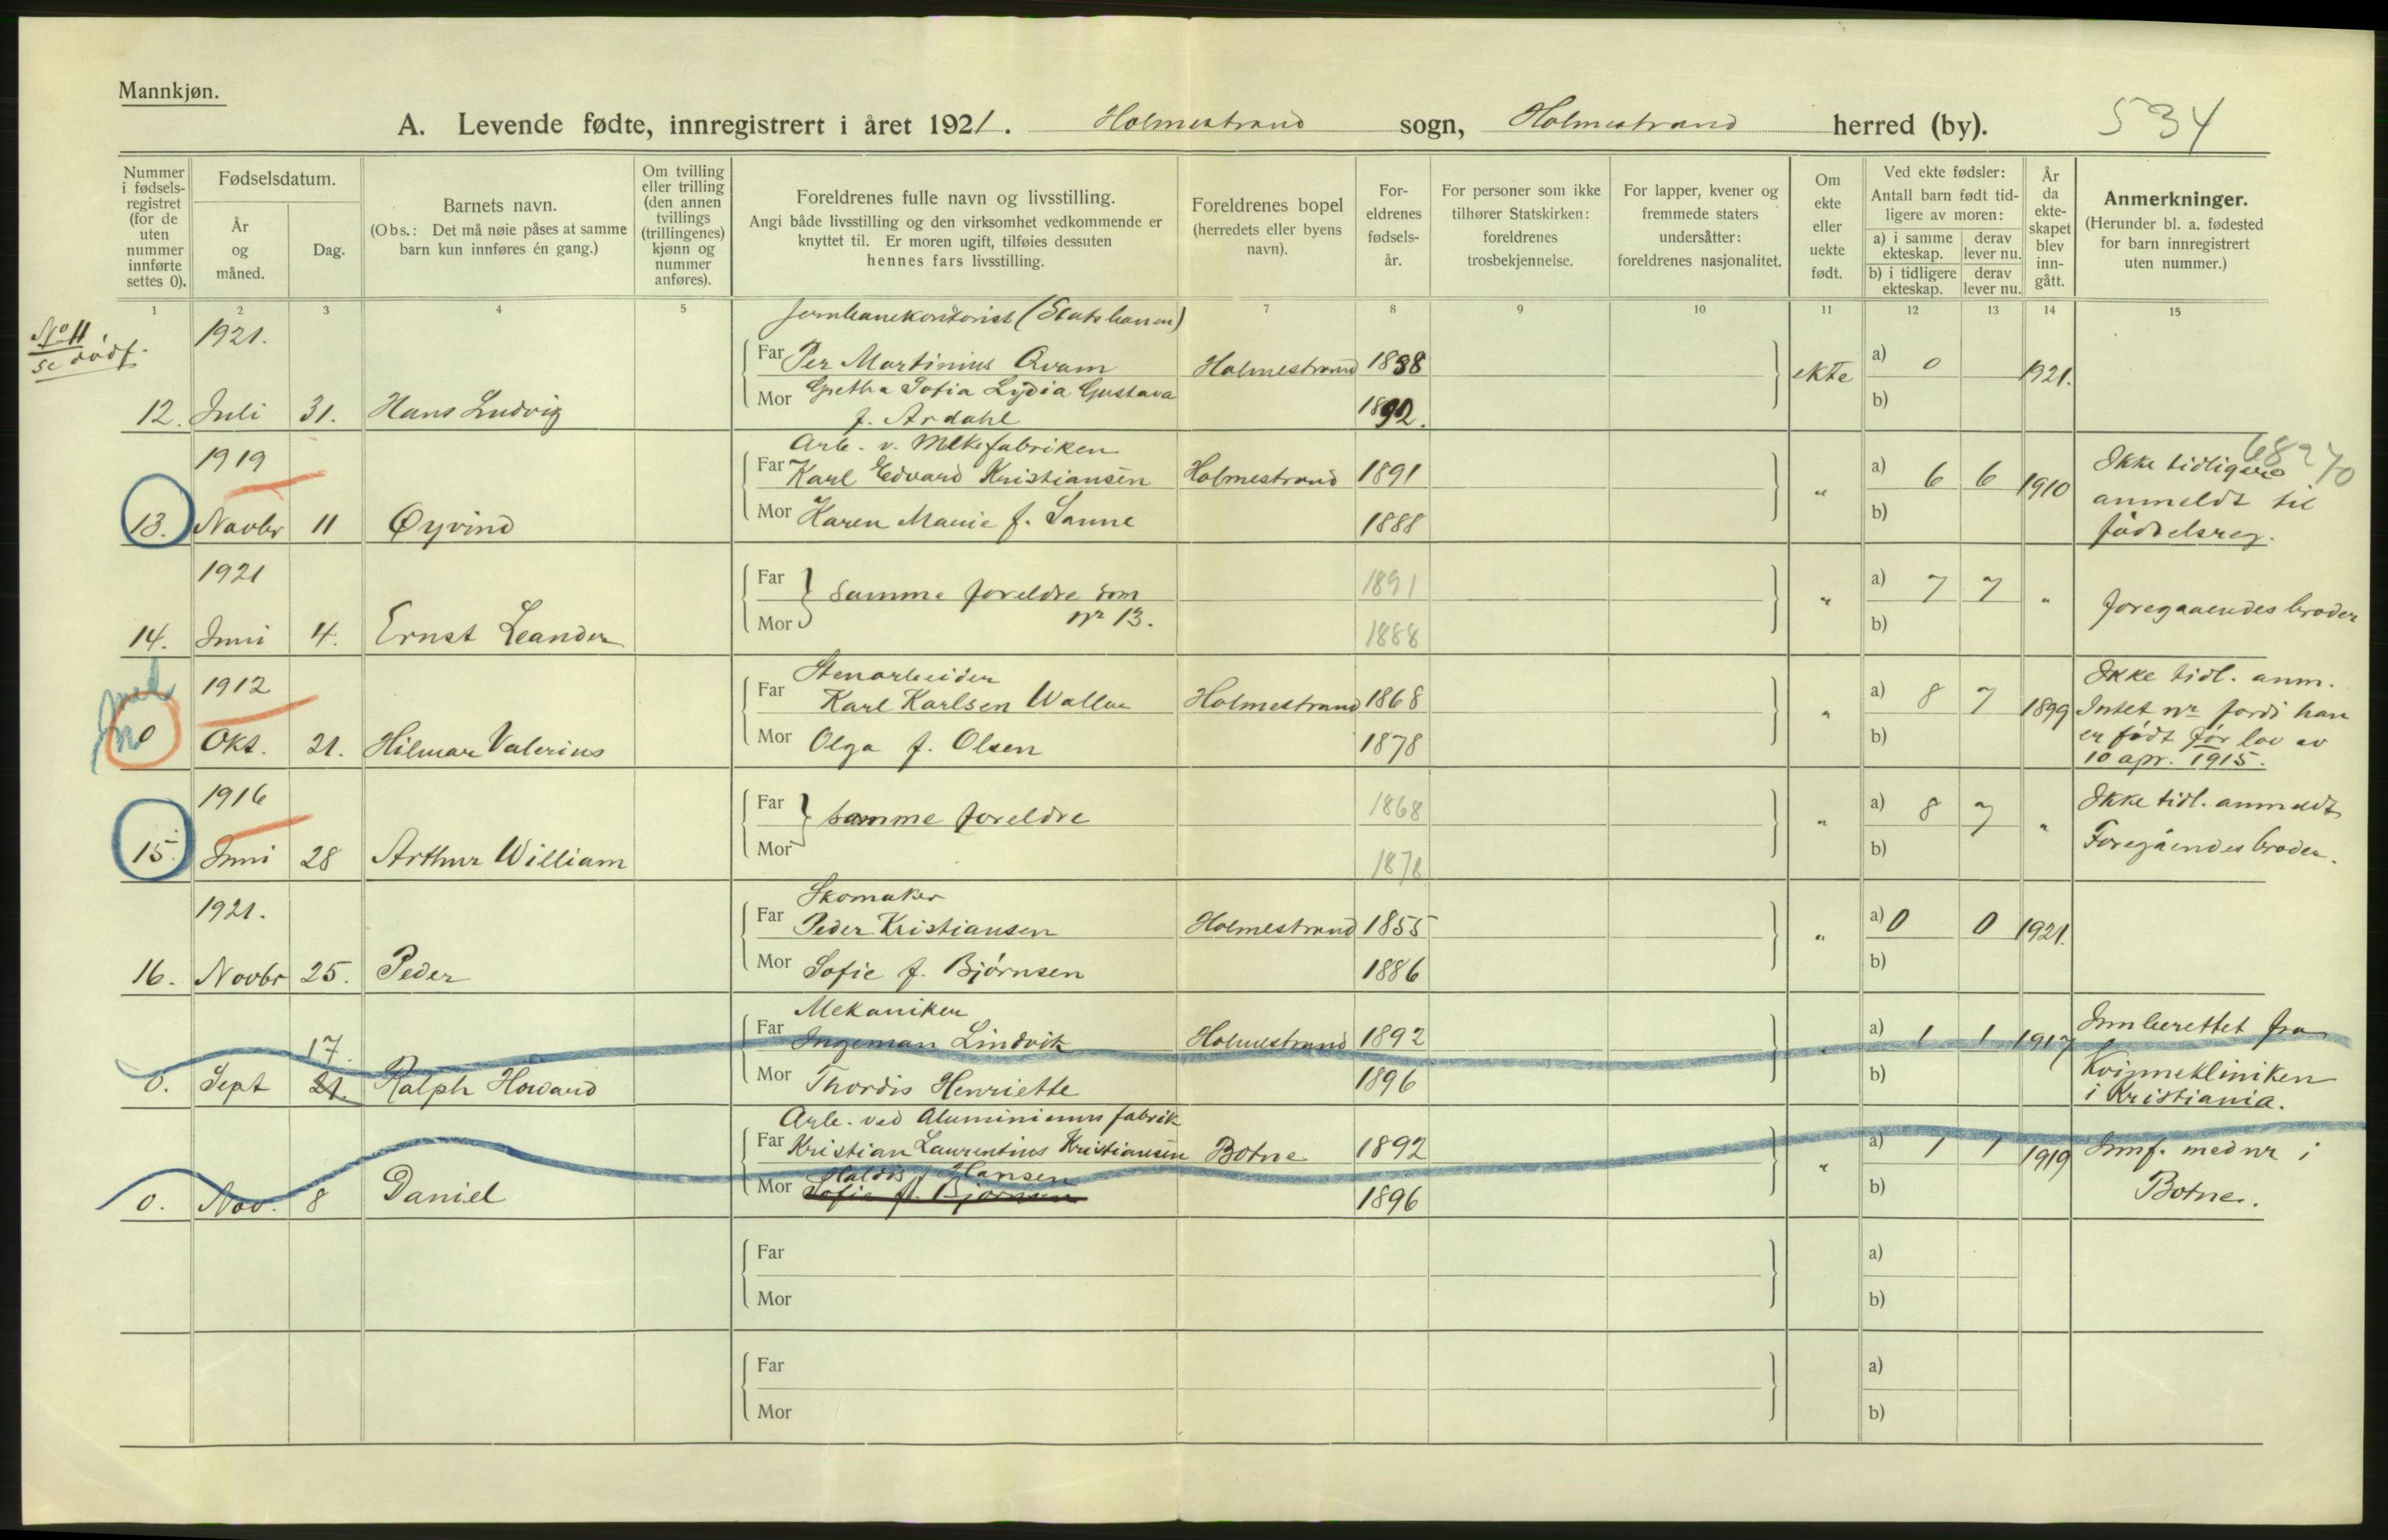 Mannkjøn.
A. Levende fødte, innregistrert i året 1921. Holmestrand sogn, Holmestrand herred (by). 534
Nummer i fødsels-registret (for de uten nummer innførte settes 0).
Fødselsdatum.
År og måned.
Dag.
Barnets navn.
(Obs.: Det må nøie påses at samme barn kun innføres én gang.)
Om tvilling eller trilling (den annen tvillings (trillingenes) kjønn og nummer anføres).
Foreldrenes fulle navn og livsstilling.
Angi både livsstilling og den virksomhet vedkommende er knyttet til. Er moren ugift, tilføies dessuten hennes fars livsstilling.
Foreldrenes bopel (herredets eller byens navn).
For-eldrenes fødsels-år.
For personer som ikke tilhører Statskirken: foreldrenes trosbekjennelse.
For lapper, kvener og fremmede staters undersåtter: foreldrenes nasjonalitet.
Om ekte eller uekte født.
Ved ekte fødsler:
Antall barn født tid-ligere av moren:
a) i samme ekteskap. derav lever nu.
b) i tidligere ekteskap. derav lever nu.
År da ekte-skapet blev inn-gått.
Anmerkninger.
(Herunder bl. a. fødested for barn innregistrert uten nummer.)
1 2 3 4 5 7 8 9 10 11 12 13 14 15
No 11 se dødf.
1921. Jernbanekontorist (Statsbanen)
Far Per Martinius Qvam Holmestrand 1888 ekte a) 0 1921.
Mor Gretha Sofia Lydia Gustava 1892. b)
12. Juli 31. Hans Ludvig f. Ardahl
1919 Arb. v. Melkefabriken 68270
Far Karl Edvard Kristiansen Holmestrand 1891 " a) 6 6 1910 Ikke tidligere
13. Novbr 11 Øyvind Mor Karen Marie f. Sanne 1888 b) anmeldt til
fødselsreg.
1921 Far samme foreldre som 1891 " a) 7 7 " foregaaendes broder
14. Juni 4. Ernst Leander Mor nr 13. 1888 b)
1912 Stenarbeider Ikke tidl. anm.
Far Karl Karlsen Wallae Holmestrand 1868 " a) 8 7 1899 Intet nr fordi han
0 Okt. 21. Hilmar Valerius Mor Olga f. Olsen 1878 b) er født før lov av
10 apr. 1915.
1916 Far samme foreldre 1868 " a) 8 7 " Ikke tidl. anmeldt
15. Juni 28 Arthur William Mor 1878 b) Foregåendes broder.
1921. Skomaker
Far Peder Kristiansen Holmestrand 1855 " a) 0 0 1921.
16. Novbr 25. Peder Mor Sofie f. Bjørnsen 1886 b)
Mekaniker
17. Far Ingeman Lindvik Holmestrand 1892 " a) 1 1 1917 Innberettet fra
0. Sept 21. Ralph Howard Mor Thordis Henriette 1896 b) Kvinnekliniken
i Kristiania.
Arb. ved Aluminiumsfabrik
Far Kristian Laurentius Kristiansen Botne 1892 " a) 1 1 1919 Innf. med nr i
Haldis f. Hansen
0. Nov. 8 Daniel Mor Sofie f. Bjørnsen 1896 b) Botne.
Far a)
Mor b)
Far a)
Mor b)